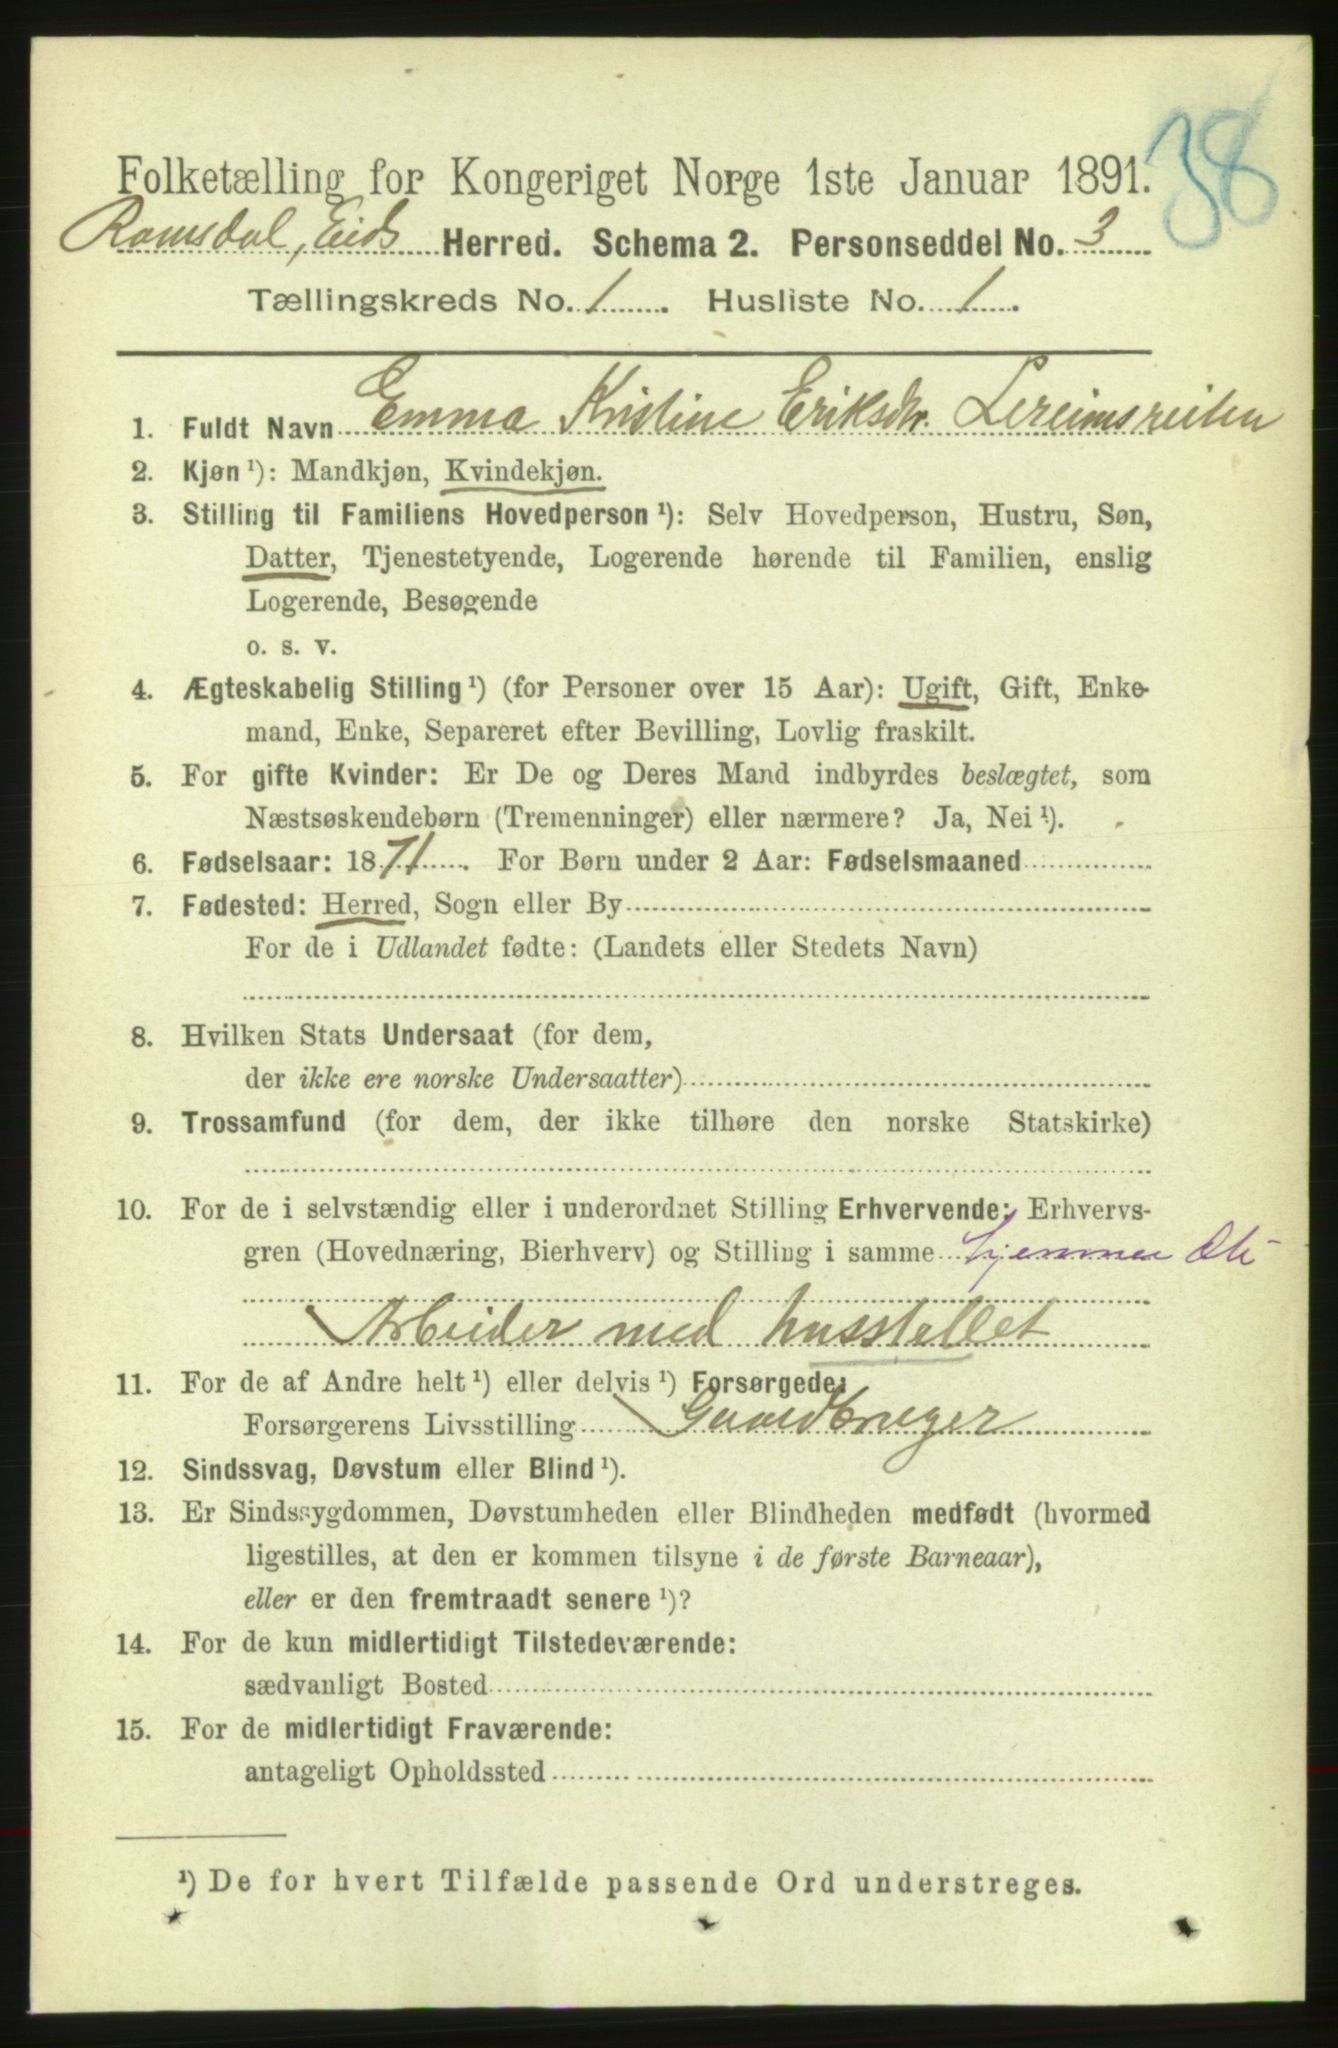 38
Folketælling for Kongeriget Norge 1ste Januar 1891.
Romsdal, Eids Herred. Schema 2. Personseddel No. 3
Tællingskreds No. 1. Husliste No. 1.
1. Fuldt Navn Emma Kristine Eriksdtr. Lereimsreiten
2. Kjøn ¹): Mandkjøn, Kvindekjøn.
3. Stilling til Familiens Hovedperson ¹): Selv Hovedperson, Hustru, Søn,
Datter, Tjenestetyende, Logerende hørende til Familien, enslig
Logerende, Besøgende
o. s. v.
4. Ægteskabelig Stilling ¹) (for Personer over 15 Aar): Ugift, Gift, Enke-
mand, Enke, Separeret efter Bevilling, Lovlig fraskilt.
5. For gifte Kvinder: Er De og Deres Mand indbyrdes beslægtet, som
Næstsøskendebørn (Tremenninger) eller nærmere? Ja, Nei ¹).
6. Fødselsaar: 1871. For Børn under 2 Aar: Fødselsmaaned
7. Fødested: Herred, Sogn eller By
For de i Udlandet fødte: (Landets eller Stedets Navn)
8. Hvilken Stats Undersaat (for dem,
der ikke ere norske Undersaatter)
9. Trossamfund (for dem, der ikke tilhøre den norske Statskirke)
10. For de i selvstændig eller i underordnet Stilling Erhvervende: Erhvervs-
gren (Hovednæring, Bierhverv) og Stilling i samme hjemmev. dtr
Arbeider med husstellet
11. For de af Andre helt ¹) eller delvis ¹) Forsørgede:
Forsørgerens Livsstilling Gaardbruger
12. Sindssvag, Døvstum eller Blind ¹).
13. Er Sindssygdommen, Døvstumheden eller Blindheden medfødt (hvormed
ligestilles, at den er kommen tilsyne i de første Barneaar),
eller er den fremtraadt senere ¹)?
14. For de kun midlertidigt Tilstedeværende:
sædvanligt Bosted
15. For de midlertidigt Fraværende:
antageligt Opholdssted
¹) De for hvert Tilfælde passende Ord understreges.